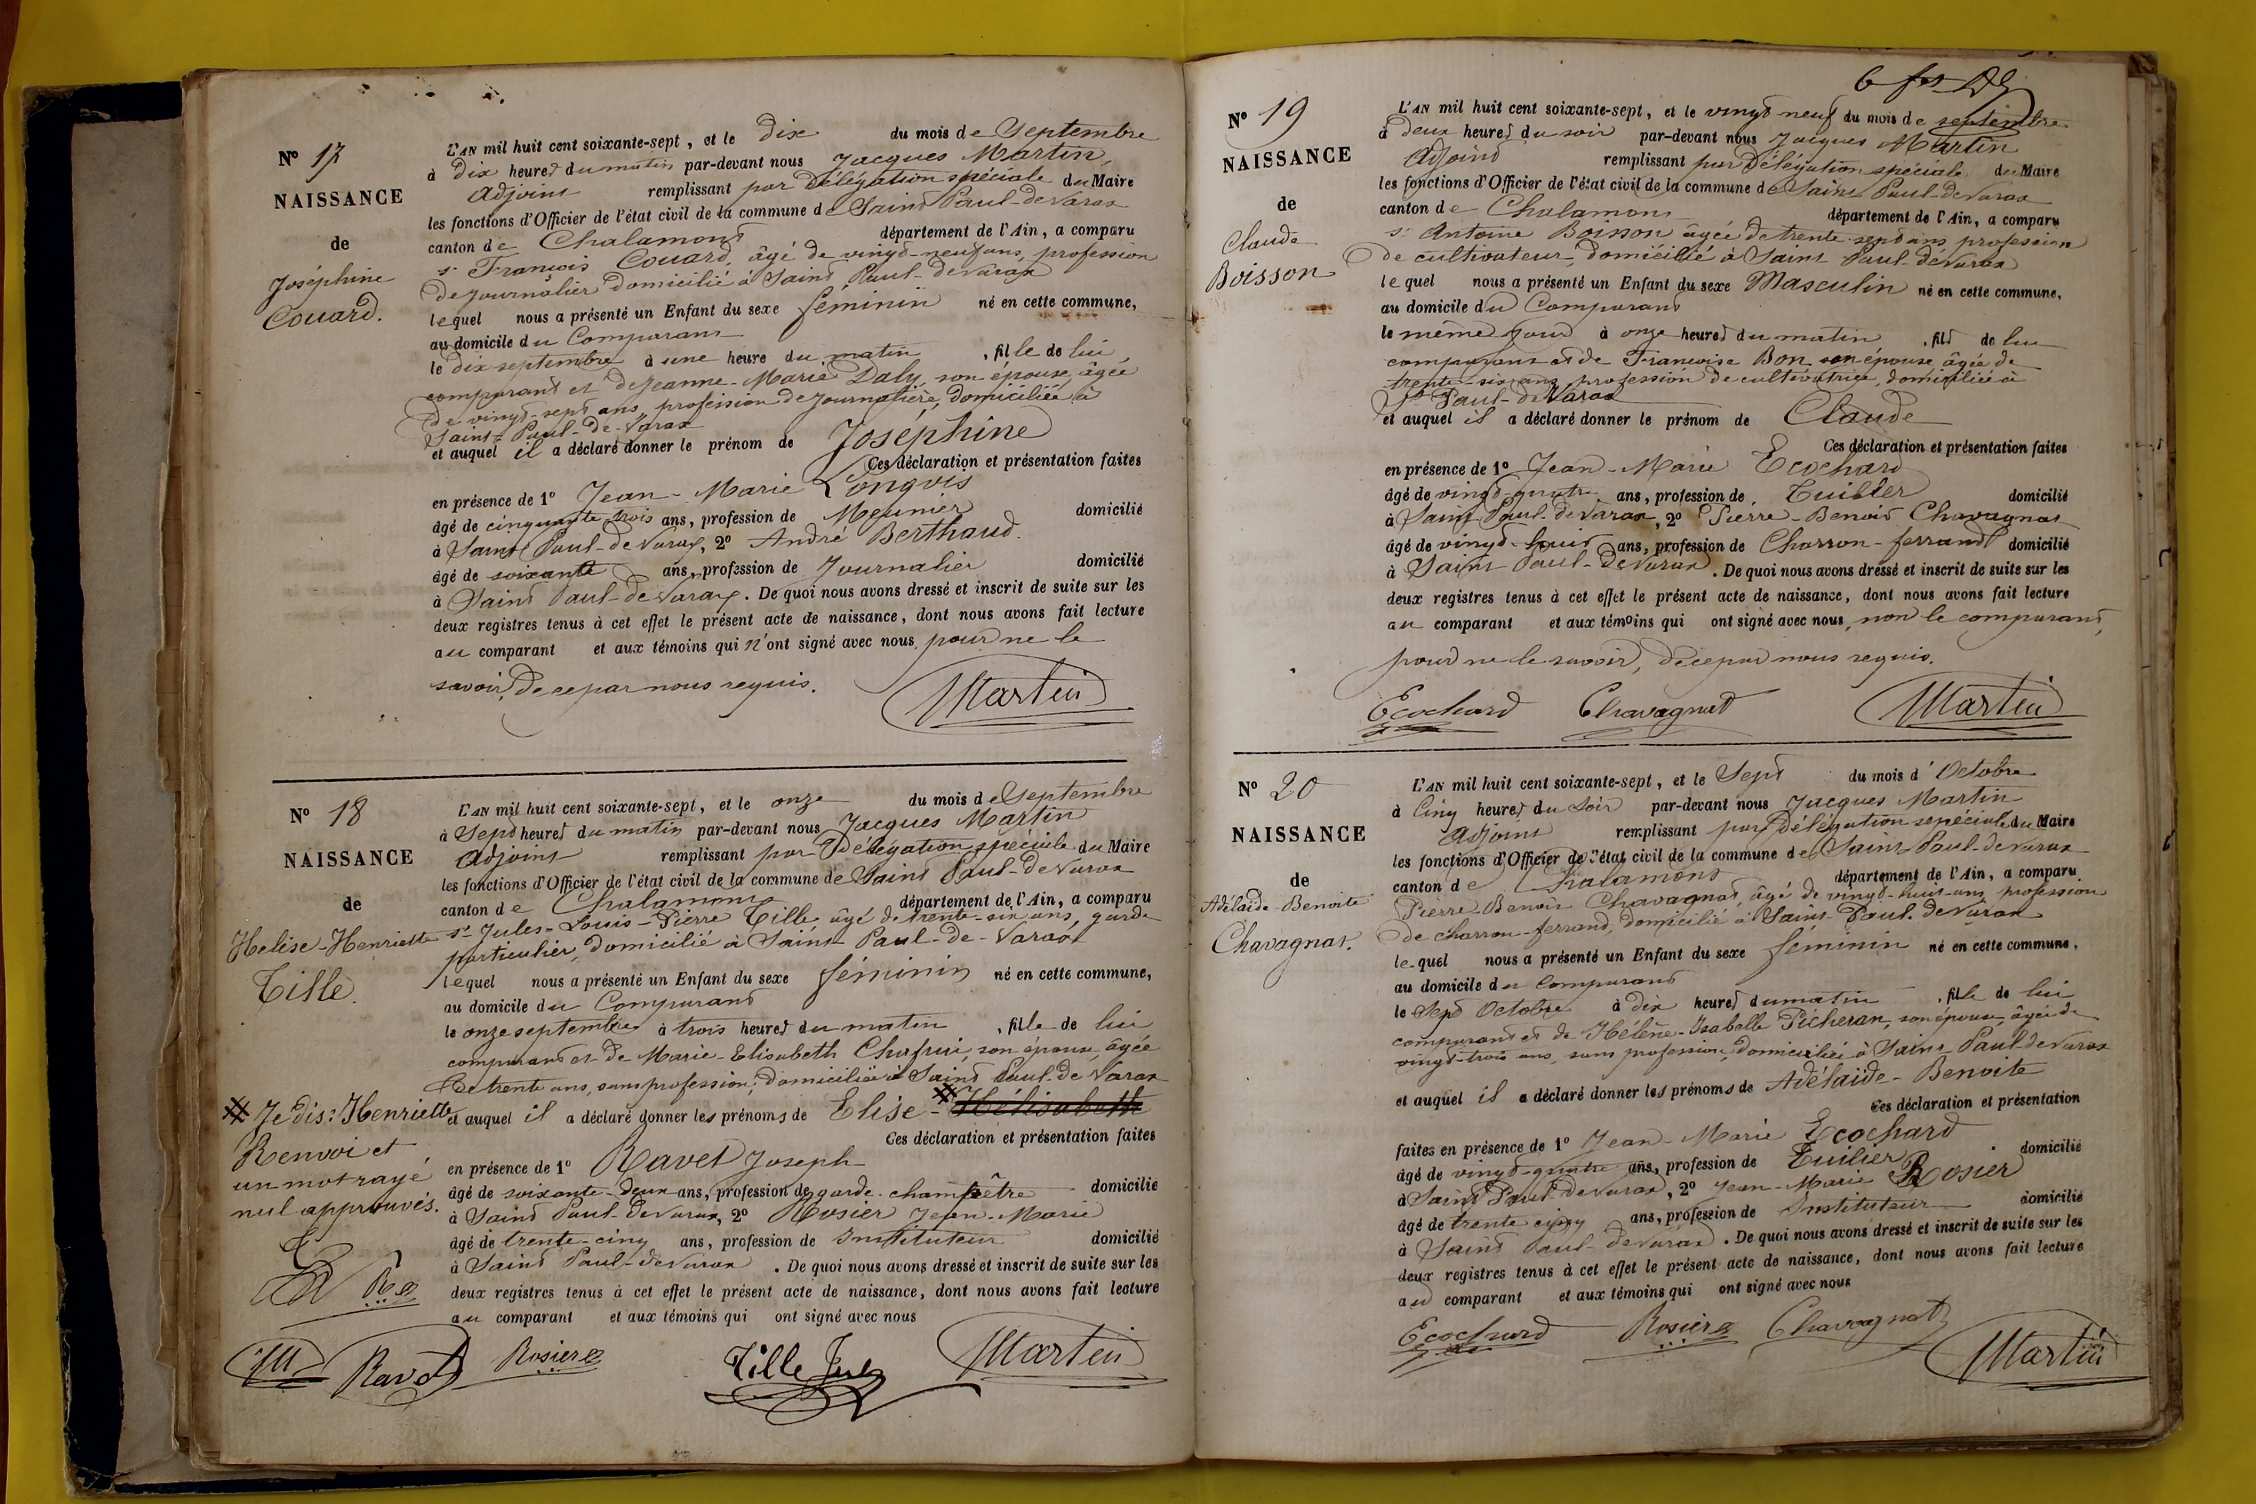 N° 17
NAISSANCE
de
Joséphine
Couard.
L'AN mil huit cent soixante-sept, et le dix du mois de Septembre
à dix heures du matin par-devant nous Jacques Martin,
adjoint remplissant par Délégation spéciale du Maire
les fonctions d'Officier de l'état civil de la commune de Saint Paul-de Varax
canton de Chalamont département de l'Ain, a comparu
sr François Couard, âgé de vingt-neuf ans, profession
de journalier domicilié à Saint Paul-de Varax
lequel nous a présenté un Enfant du sexe féminin né en cette commune,
au domicile du Comparant
le dix septembre à une heure du matin, fille de lui
comparant et de Jeanne-Marie Daly, son épouse, âgée
de vingt-sept ans, profession de journalière, domiciliée à
Saint-Paul-de-Varax
et auquel il a déclaré donner le prénom de Joséphine
Ces déclaration et présentation faites
en présence de 1° Jean-Marie Longvis
âgé de cinquante trois ans, profession de Meunier domicilié
à Saint Paul-de Varax, 2° André Berthaud.
âgé de soixante ans, profession de Journalier domicilié
à Saint Paul-de Varax. De quoi nous avons dressé et inscrit de suite sur les
deux registres tenus à cet effet le présent acte de naissance, dont nous avons fait lecture
au comparant et aux témoins qui n'ont signé avec nous, pour ne le
savoir, de ce par nous requis.
Martin
N° 18
NAISSANCE
de
Helise-Henriette
Tille.
L'AN mil huit cent soixante-sept, et le onze du mois de Septembre
à Sept heures du matin par-devant nous Jacques Martin
adjoint remplissant par Délégation spéciale du Maire
les fonctions d'Officier de l'état civil de la commune de Saint Paul-de Varax
canton de Chalamont département de l'Ain, a comparu
sr Jules-Louis-Pierre Tille âgé de trente-six ans, garde
particulier, domicilié à Saint Paul-de-Varax
lequel nous a présenté un Enfant du sexe féminin né en cette commune,
au domicile du Comparant
le onze septembre à trois heures du matin, fille de lui
comparant et de Marie-Elisabeth, son épouse, âgée
de trente ans, sans profession, domiciliée à Saint Paul-de Varax
et auquel il a déclaré donner les prénoms de Elise- Hélisabeth
Ces déclaration et présentation faites
en présence de 1° Ravet Joseph
âgé de soixante-deux ans, profession de garde-champêtre domicilié
à Saint Paul-de Varax, 2° Rosier Jean-Marie
âgé de trente-cinq ans, profession de Instituteur domicilié
à Saint Paul-de Varax. De quoi nous avons dressé et inscrit de suite sur les
deux registres tenus à cet effet le présent acte de naissance, dont nous avons fait lecture
au comparant et aux témoins qui ont signé avec nous
Je dis: Henriette
Renvoi et
un mot rayé
nul approuvés.
Ravet Rosier Tille Jules Martin
N° 19
NAISSANCE
de
Claude
Boisson
L'AN mil huit cent soixante-sept, et le vingt neuf du mois de septembre
à deux heures du soir par-devant nous Jacques Martin
Adjoint remplissant par Délégation spéciale du Maire
les fonctions d'Officier de l'état civil de la commune de Saint Paul-de Varax
canton de Chalamont département de l'Ain, a comparu
sr Antoine Boisson âgée de trente-sept ans, profession
de cultivateur, domicilié à Saint Paul-de Varax
lequel nous a présenté un Enfant du sexe Masculin né en cette commune,
au domicile du Comparant
le même jour à onze heures du matin, fils de lui
comparant et de Françoise Bon son épouse âgée de
trente-six ans, profession de cultivatrice, domiciliée à
St Paul-de Varax
et auquel il a déclaré donner le prénom de Claude
Ces déclaration et présentation faites
en présence de 1° Jean-Marie Ecochard
âgé de vingt-quatre ans, profession de Tuilier domicilié
à Saint Paul-de Varax, 2° Pierre-Benoit Chavagnat
âgé de vingt-huit ans, profession de Charron-ferrand domicilié
à Saint Paul-de Varax. De quoi nous avons dressé et inscrit de suite sur les
deux registres tenus à cet effet le présent acte de naissance, dont nous avons fait lecture
au comparant et aux témoins qui ont signé avec nous, non le comparant,
pour ne le savoir, de ce par nous requis.
Ecochard Chavagnat Martin
N° 20
NAISSANCE
de
Adélaïde-Benoite
Chavagnat.
L'AN mil huit cent soixante-sept, et le Sept du mois d'Octobre
à Cinq heures du soir par-devant nous Jacques Martin
adjoint remplissant par Délégation sepéciale du Maire
les fonctions d'Officier de l'état civil de la commune de Saint-Paul-de Varax
canton de Chalamont département de l'Ain, a comparu
Pierre-Benoit Chavagnat, âgé de vingt-huit-ans, profession
de charron-ferrand, domicilié à Saint Paul-de Varax
lequel nous a présenté un Enfant du sexe féminin né en cette commune,
au domicile du Comparant
le Sept Octobre à dix heures du matin, fille de lui
comparant et de Hélène-Isabelle Picheran, son épouse, âgée de
vingt-trois ans, sans profession, domiciliée à Saint Paul-de Varax
et auquel il a déclaré donner les prénoms de Adélaïde-Benoite
Ces déclaration et présentation
faites en présence de 1° Jean-Marie Ecochard
âgé de vingt-quatre ans, profession de Tuilier domicilié
à Saint Paul-de Varax, 2° Jean-Marie Rosier
âgé de trente cinq ans, profession de Instituteur domicilié
à Saint Paul-de Varax. De quoi nous avons dressé et inscrit de suite sur les
deux registres tenus à cet effet le présent acte de naissance, dont nous avons fait lecture
au comparant et aux témoins qui ont signé avec nous
Ecochard Rosier Chavagnat
Martin